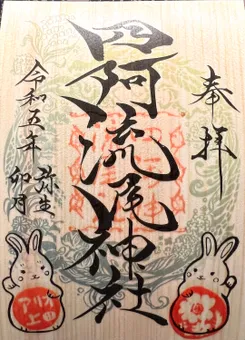 奉拝
四阿流尾神社
令和五年
弥生
卯月